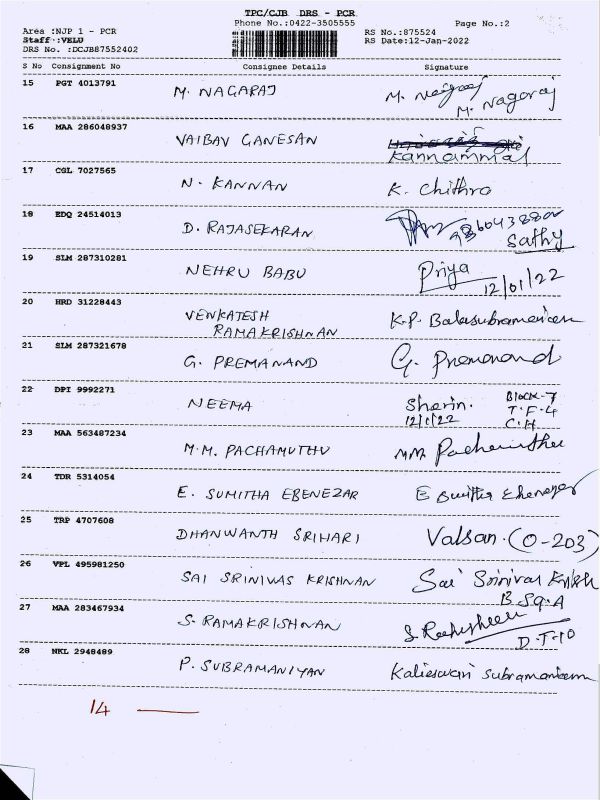 TPC/CJB DRS - PCR
Phone No.:0422-3505555
Page No.:2
Area :NJP 1 - PCR
Staff :VELU
DRS No. :DCJB87552402
RS No.:875524
RS Date:12-Jan-2022
S No Consignment No Consignee Details Signature
15 PGT 4013791 M. NAGARAJ M. Nagaraj
M. Nagaraj
16 MAA 286048937 VAIBAV GANESAN
Kannammal
17 CGL 7027565 N. KANNAN K. Chithra
18 EDQ 24514013 D. RAJASEKARAN
Sathy
19 SLM 287310281 NEHRU BABU Priya
12/01/22
20 HRD 31228443 VENKATESH K.P. Balasubramaniam
RAMAKRISHNAN
21 SLM 287321678 G. PREMANAND G. Premanand
22 DPI 9992271 NEEMA Sherin. Block-7
12/1/22 T.F-4
C.H
23 MAA 563487234 M.M. PACHAMUTHU MM Pachamuthu
24 TDR 5314054 E. SUMITHA EBENEZAR E Sumitha Ebenezer
25 TRP 4707608 DHANWANTH SRIHARI Valsan. (O-203)
26 VPL 495981250 SAI SRINIVAS KRISHNAN Sai Srinivas Krish
B Sq. A
27 MAA 283467934 S. RAMAKRISHNAN
D.T-10
28 NKL 2948489 P. SUBRAMANIYAN Kalieswari Subramaniam
14